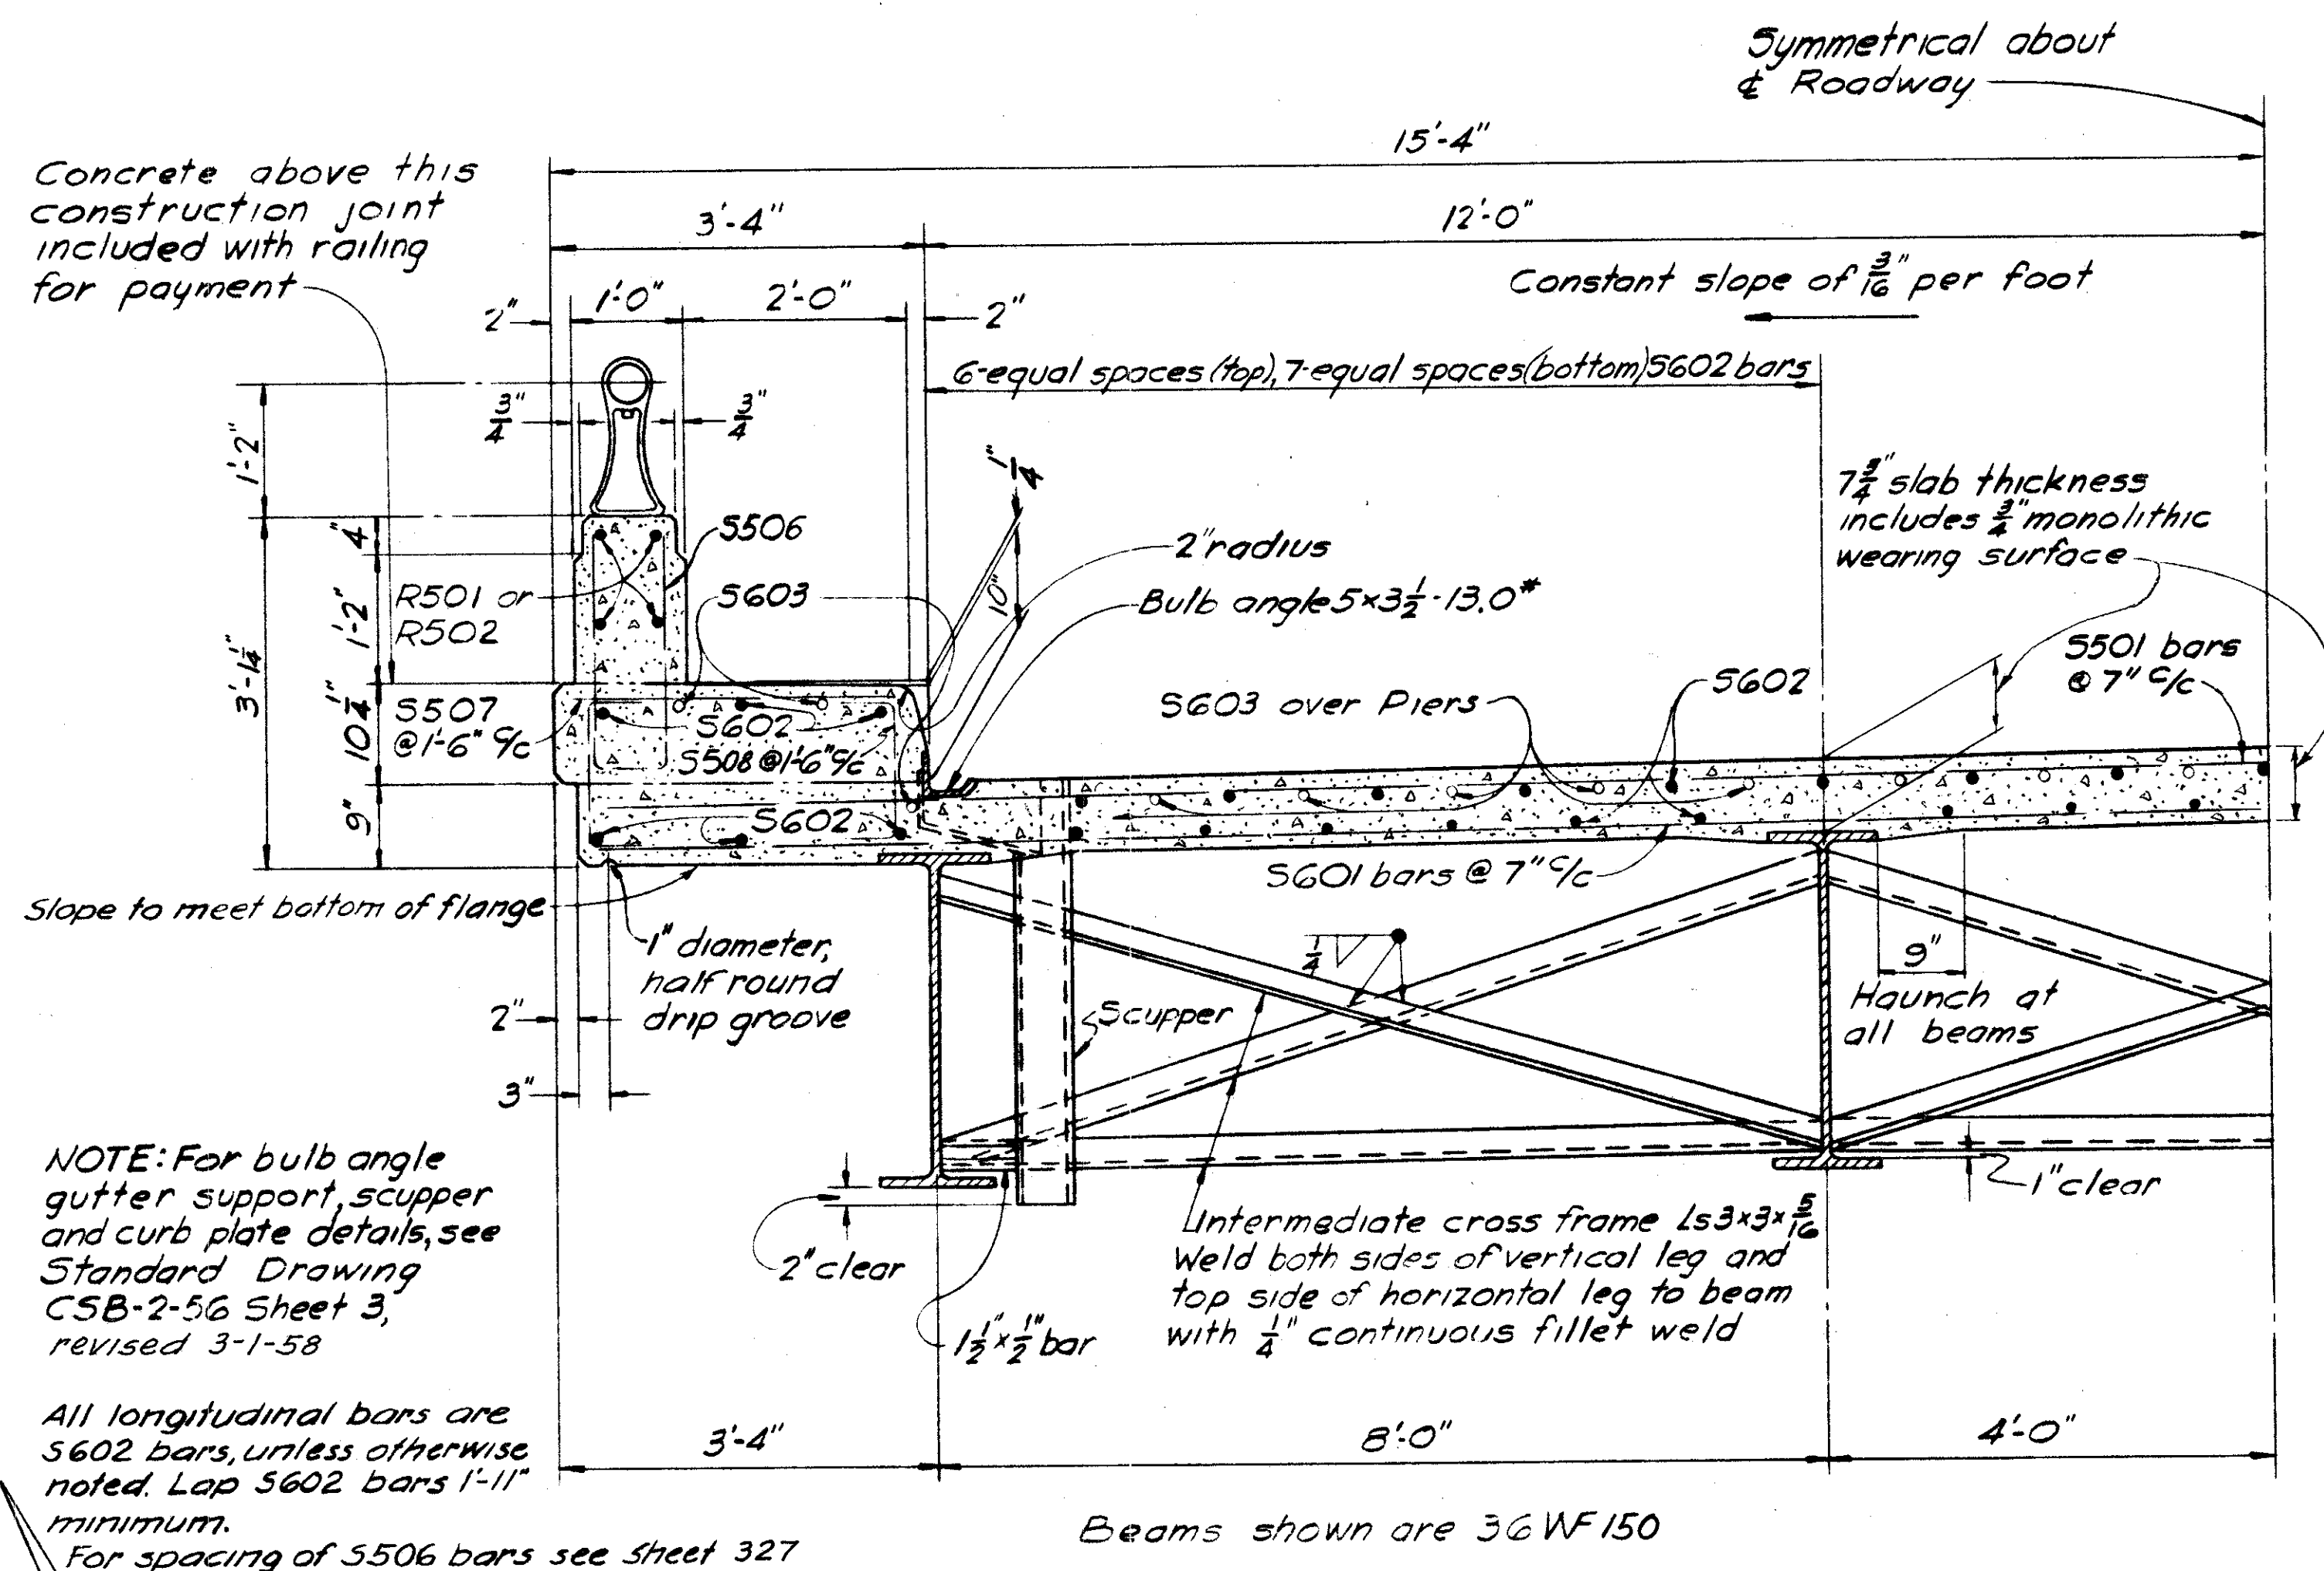 Symmetrical about
℄ Roadway
15'-4"
Concrete above this
construction joint
included with railing
for payment
3'-4"
12'-0"
Constant slope of 3/16" per foot
2"
1'-0"
2'-0"
2"
6-equal spaces (top), 7-equal spaces (bottom) S602 bars
3/4"
3/4"
1'-2"
1/4"
10"
7 3/4" slab thickness
includes 3/4" monolithic
wearing surface
4"
S506
2" radius
Bulb angle 5×3 1/2-13.0#
R501 or
R502
S603
1'-2"
3'-1 1/4"
S501 bars
@ 7" c/c
S603 over Piers
S602
10 1/4"
S507
@ 1'-6" c/c
S602
S508 @ 1'-6" c/c
9"
S602
S601 bars @ 7" c/c
Slope to meet bottom of flange
1" diameter,
half round
drip groove
1/4
9"
Haunch at
all beams
2"
Scupper
3"
NOTE: For bulb angle
gutter support, scupper
and curb plate details, see
Standard Drawing
CSB-2-56 Sheet 3,
revised 3-1-58
1" clear
2" clear
1 1/2" × 1/2" bar
Intermediate cross frame Ls 3×3×5/16
Weld both sides of vertical leg and
top side of horizontal leg to beam
with 1/4" continuous fillet weld
All longitudinal bars are
S602 bars, unless otherwise
noted. Lap S602 bars 1'-11"
minimum.
For spacing of S506 bars see sheet 327
3'-4"
8'-0"
4'-0"
Beams shown are 36 WF 150